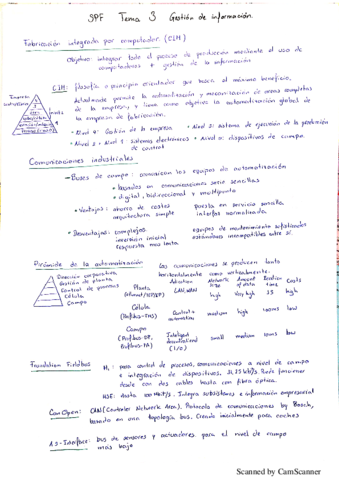 SPF Tema 3 Gestión de información.
Fabricación integrada por computador. (CIM)
Objetivo: integrar todo el proceso de producción mediante el uso de
computadores + gestión de la información
CIM: filosofía o principio orientador que busca el máximo beneficio.
Actualmente permite la automatización y mecanización de áreas completas
de la empresa, y tiene como objetivo la automatización global de
la empresa de fabricación.
Nivel 4: Gestión de la empresa
Nivel 3: sistemas de ejecución de la producción
sistemas electrónicos
de control
dispositivos de campo
Comunicaciones industriales
- Buses de campo: comunican los equipos de automatización
basados en comunicaciones serie sencillas
digital, bidireccional y multipunto
- Ventajas: ahorro de costes
puesta en servicio sencilla
arquitectura simple
interfaz normalizada.
- Desventajas: complejos.
equipos de mantenimiento sofisticados
inversión inicial
estándares incompatibles entre sí.
respuesta mas lenta
Pirámide de la automatización
Las comunicaciones se producen tanto
horizontalmente como verticalmente.
Dirección corporativa
Gestión de planta
Control de procesos
Célula
Campo
Planta
(Ethernet/TCP/IP)
high
very high
high
Célula
(Profibus-FMS)
medium
high
low
Campo
(Profibus-DP,
Profibus-PA)
(I/O)
small
medium
low
Foundation Fieldbus
H1: para control de procesos, comunicaciones a nivel de campo
e integración de dispositivos. 31,25 kb/s. Puede funcionar
desde con dos cables hasta con fibra óptica.
HSE: hasta 100 Mbit/s. Integra subsistemas e información empresarial
CanOpen: CAN (Controller Network Area). Protocolo de comunicaciones by Bosch,
basado en una topología bus. Creado inicialmente para coches
AS-Interface: bus de sensores y actuadores. para el nivel de campo
más bajo
Scanned by CamScanner